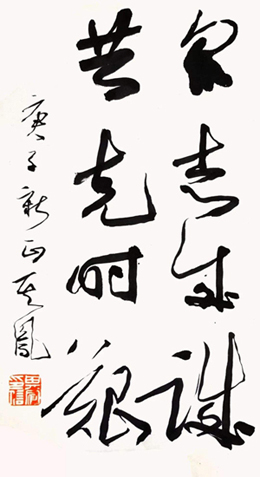 众志成城
共克时艰
庚子新正